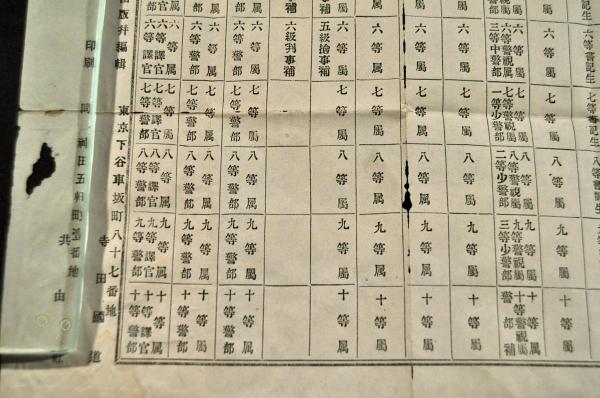 六等書記生 七等書記生 八等書記生
六等屬 七等屬 八等屬 九等屬 十等屬
六等屬 七等屬 八等屬 九等屬 十等屬
六等警視屬 七等警視屬 八等警視屬 九等警視屬 十等警視屬
三等中警部 一等少警部 二等少警部 三等少警部 警部補
六等屬 七等屬 八等屬 九等屬 十等屬
六等屬 七等屬 八等屬 九等屬 十等屬
六等属 七等属 八等属 九等属 十等属
五級撿事補
六級判事補
六等屬 七等屬 八等屬 九等屬 十等屬
六等警部 七等警部 八等警部 九等警部 十等警部
六等属 七等属 八等属 九等属 十等属
六等警部 七等警部 八等警部 九等警部 十等警部
六等属 七等属 八等属 九等属 十等属
六等譯官 七等譯官 八等譯官 九等譯官 十等譯官
版并編輯 東京下谷車坂町八十七番地 寺田國道
印刷 同 神田五軒町壹番地 共由